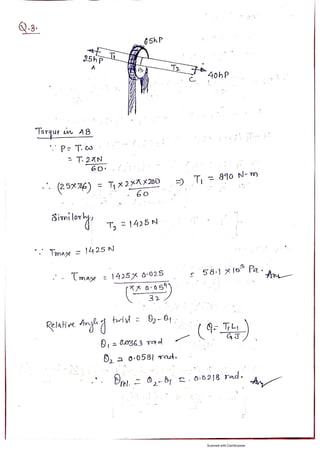 Q.3.
65hp
25hp T1 T2 40hp
A B C
Torque in AB
∵ P = T.ω
= T. 2πN / 60.
∴ (25×746) = T1 × 2×π×200 / 60 ⇒ T1 = 890 N-m
Similarly, T2 = 1425 N
∵ Tmax = 1425 N
∴ τmax = 1425 × 0.025 / (π × 0.05⁴ / 32) = 58.1 × 10⁵ Pa. Ans
Relative Angle of twist = θ2 - θ1. (θ = T1L1 / GJ)
θ1 = 0.0363 rad
θ2 = 0.0581 rad.
∴ θrel. = θ2 - θ1 = 0.0218 rad. Ans
Scanned with CamScanner